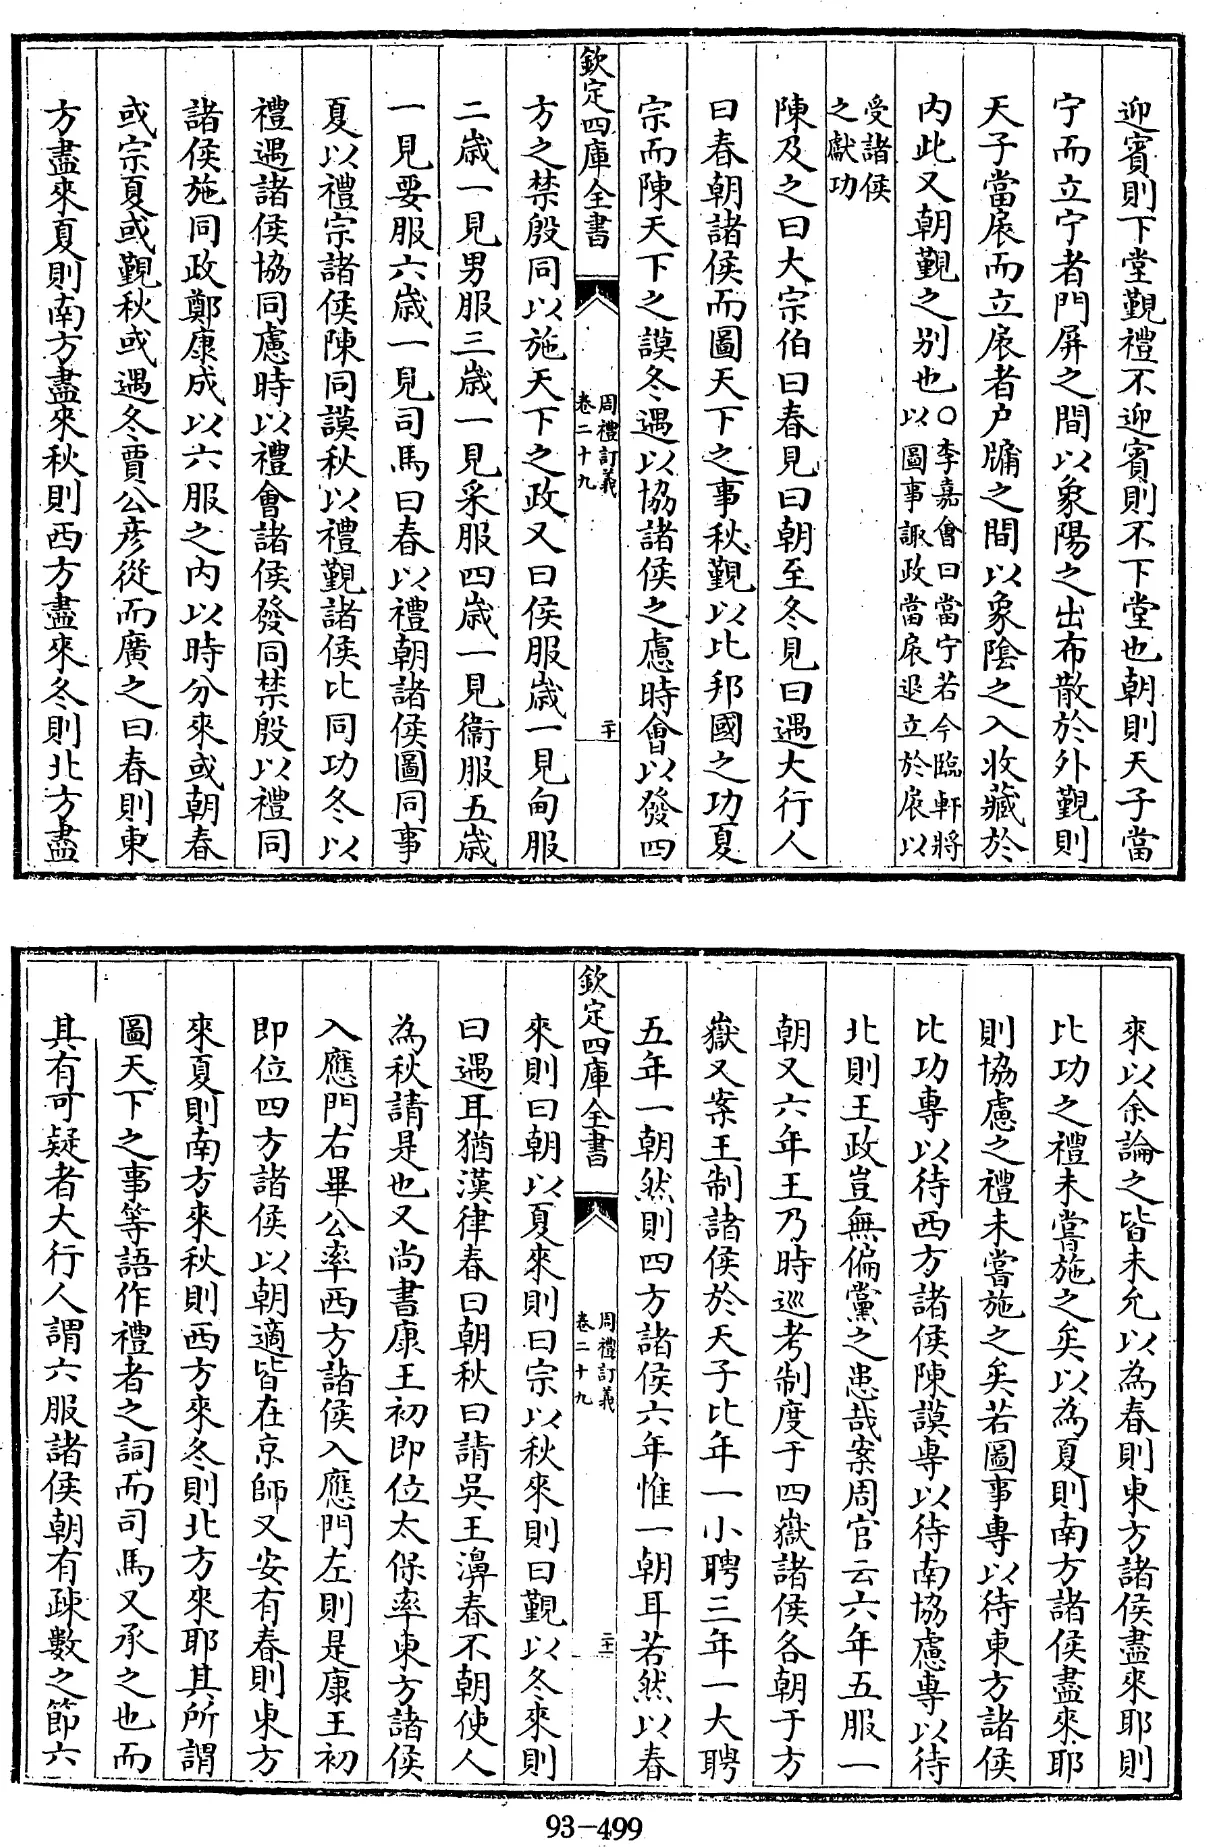 迎賓則下堂覲禮不迎賓則不下堂也朝則天子當
宁而立宁者門屏之間以象陽之出布散於外覲則
天子當扆而立扆者户牖之間以象陰之入收藏於
内此又朝覲之别也○李嘉會曰當宁若今臨軒將
以圖事諏政當扆退立於扆以
受諸侯
之獻功
陳及之曰大宗伯曰春見曰朝至冬見曰遇大行人
曰春朝諸侯而圖天下之事秋覲以比邦國之功夏
宗而陳天下之謨冬遇以協諸侯之慮時會以發四
欽定四庫全書
周禮訂義
卷二十九
二十
方之禁殷同以施天下之政又曰侯服歲一見甸服
二歲一見男服三歲一見采服四歲一見衞服五歲
一見要服六歲一見司馬曰春以禮朝諸侯圖同事
夏以禮宗諸侯陳同謨秋以禮覲諸侯比同功冬以
禮遇諸侯協同慮時以禮會諸侯發同禁殷以禮同
諸侯施同政鄭康成以六服之内以時分來或朝春
或宗夏或覲秋或遇冬賈公彦從而廣之曰春則東
方盡來夏則南方盡來秋則西方盡來冬則北方盡
來以余論之皆未允以為春則東方諸侯盡來耶則
比功之禮未嘗施之矣以為夏則南方諸侯盡來耶
則協慮之禮未嘗施之矣若圖事專以待東方諸侯
比功專以待西方諸侯陳謨專以待南協慮專以待
北則王政豈無偏黨之患哉案周官云六年五服一
朝又六年王乃時巡考制度于四嶽諸侯各朝于方
嶽又案王制諸侯於天子比年一小聘三年一大聘
五年一朝然則四方諸侯六年惟一朝耳若然以春
欽定四庫全書
周禮訂義
卷二十九
二十一
來則曰朝以夏來則曰宗以秋來則曰覲以冬來則
曰遇耳猶漢律春曰朝秋曰請吳王濞春不朝使人
為秋請是也又尚書康王初即位太保率東方諸侯
入應門右畢公率西方諸侯入應門左則是康王初
即位四方諸侯以朝適皆在京師又安有春則東方
來夏則南方來秋則西方來冬則北方來耶其所謂
圖天下之事等語作禮者之詞而司馬又承之也而
其有可疑者大行人謂六服諸侯朝有疎數之節六
93-499